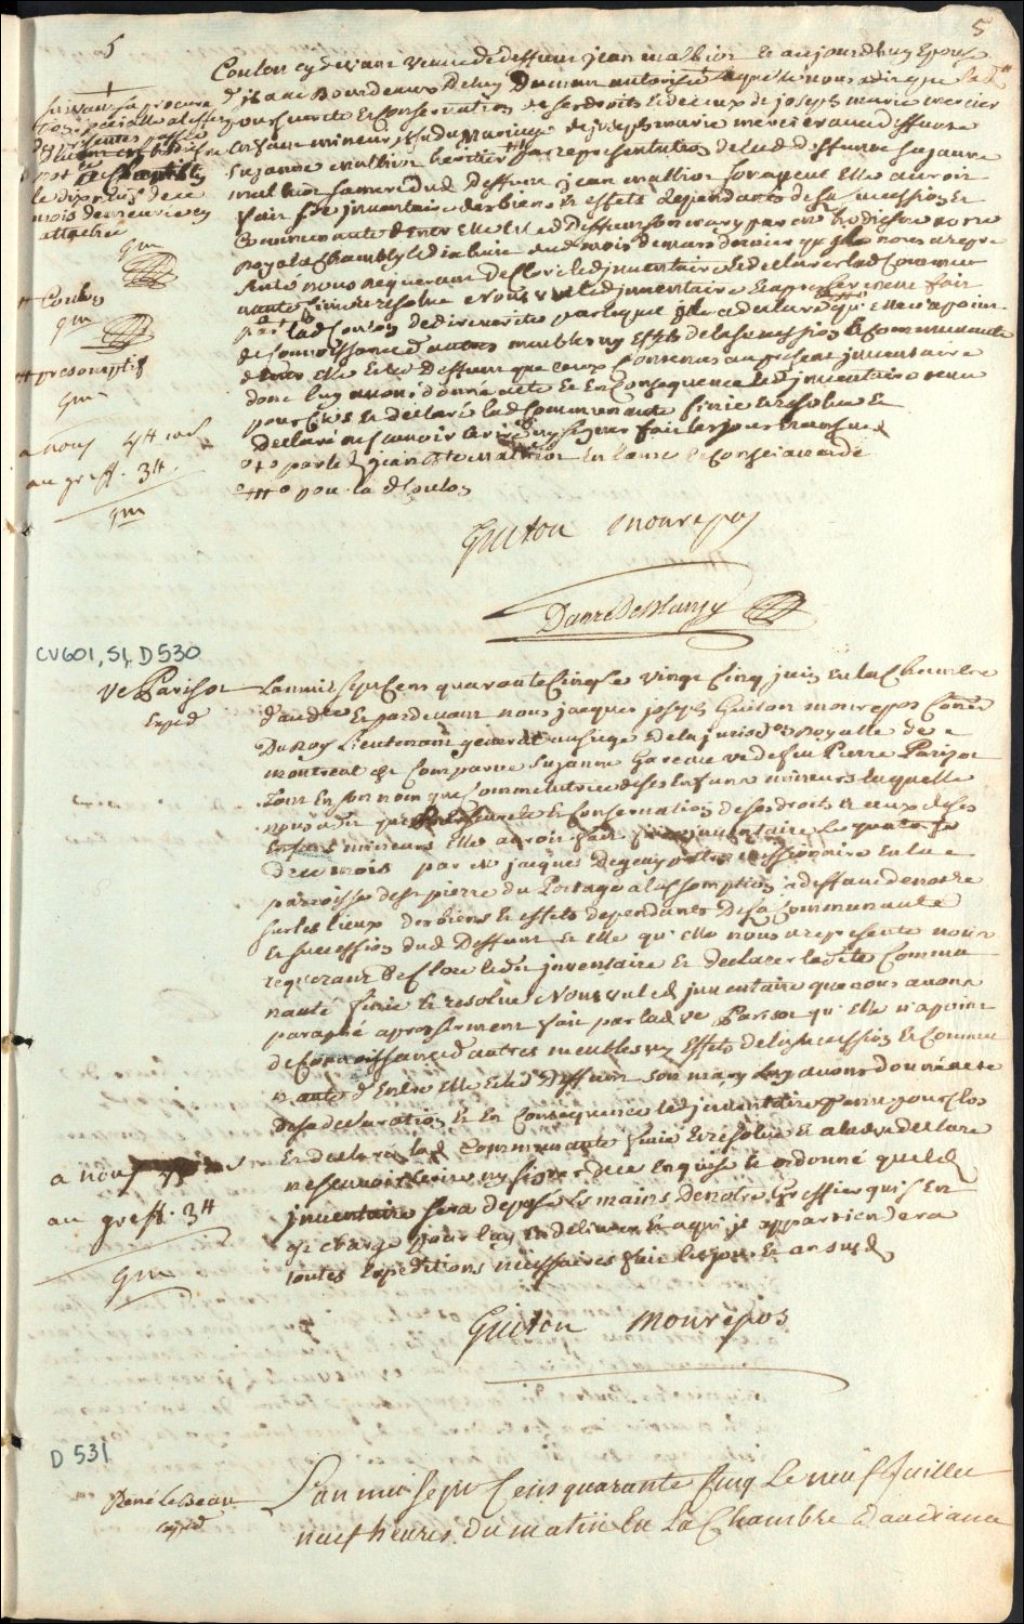 5
5
Coulon cy devant veuve de deffunt jean malhior et aujourdhuy Epouse
d'isaac Bourdeaux Deluy
pour sureté et conservation de ses droits et de ceux de joseph marie mercier
enfant mineur issu du mariage de joseph marie mercier avec deffunte
Suzanne malhior heritier par representation de lad deffunte Suzanne
malhior sa mere dud deffunt jean malhior son ayeul Elle auroit
fait faire inventaire des biens et effets dependants de la succession et
Communauté d'entre elle et led deffunt son mary par
royal à Chambly le dix huit du mois de mars dernier
requerant de clore led inventaire et declarer lad Commu
nauté finie et resolue Nous vu led inventaire apres serment fait
par lad Coulon de dire verité par laquelle
de connoissance d'autres meubles ny effets de la succession et communauté
d'entre elle et led deffunt que ceux contenus au present inventaire
donc luy avons donné acte et En Consequence led inventaire tenu
pour Clos et declaré lad Communauté finie et resolue et
declaré ne scavoir ecrire ny signer fait les jour et an susd
par led jean malhior
pour lad Coulon
suivant sa procura
presentes passée
le dix
mois demeurée cy
attachée
gm
Coulon
gm
presomptif
gm
a nous 4tt
au greff. 3tt
gm
Guiton monrepos
Danré DeBlanzy
CV601, S1, D530
Ve Parisot
Exped
Lan mil sept Cens quarante Cinq Le vingt Cinq juin En la Chambre
d'audce Et pardevant nous jacques joseph Guiton monrepos Coner
Du Roy Lieutenant general au siege de la jurison royalle de
montreal est Comparue Suzanne Gareau ve de feu Pierre Parisot
Tant En son nom que Comme tutrice de ses Enfans mineurs laquelle
nous a dit que pour sureté et Conservation de ses droits et ceux de ses
Enfans mineurs Elle auroit fait faire inventaire le quatorze
de ce mois par Me jacques Degeay pretre missionnaire En la
parroisse de St pierre du Portage a Lassomption a deffaut de notre
sur les lieux des biens et effets dependants De sa Communauté
Et succession dud Deffunt Et elle qu'elle nous a representé nous
requerant de Clore ledit inventaire et declarer ladite Commu
nauté finie et resolue Nous vu led inventaire que nous avons
paraphé apres serment fait par lad ve Parisot qu'elle n'a point
de Connoissance d'autres meubles ny Effets de la succession et Commu
nauté d'Entre Elle et led Deffunt son mary luy avons donné acte
De sa declaration et En Consequence led inventaire tenu pour clos
Et declaré lad Communauté finie et resolue Et a lad ve declaré
ne scavoir ecrire ny signer de ce enquise et ordonné que led
inventaire sera deposé Es mains de notre Greffier qui s'En
est chargé pour luy En delivrer et a qui il appartiendera
toutes Expeditions necessaires fait les jour et an susd
a nous
au greff. 3tt
gm
Guiton monrepos
D 531
René LeBeau
exped
L'an mil sept Cens quarante Cinq Le neuf Juillet
neuf heures du matin En La Chambre d'audiance